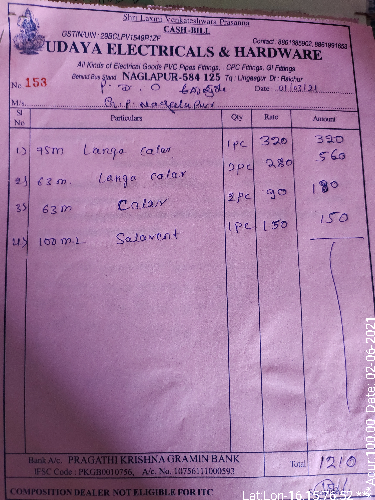 Shri Laxmi Venkateshwara Prasanna
CASH-BILL
Contact: 8861985902, 9861991853
UDAYA ELECTRICALS & HARDWARE
All Kinds of Electrical Goods PVC Pipes Fittings, CPC Fittings, GI Fittings
Behind Bus Stand NAGLAPUR-584 125 Tq: Lingasgur Dt: Raichur
No. 153 P. D. O Date: 01/03/21
M/s.
Sl No Particulars Qty Rate Amount
1) 75m Langa calar 1pc 320 320
2) 63m. Langa calar 2pc 280 560
3) 63m Calar 2pc 90 180
4) 100ml Salavent 1pc 150 150
Bank A/c. PRAGATHI KRISHNA GRAMIN BANK Total 1210
IFSC Code: PKGB0010756, A/c. No. 10756111000593
COMPOSITION DEALER NOT ELIGIBLE FOR ITC
Date: 02-06-2021